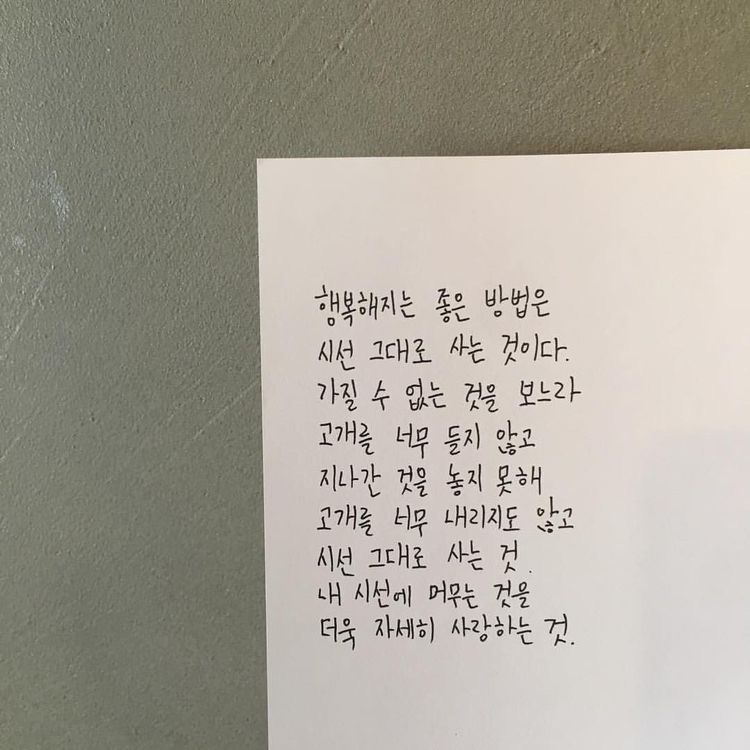 행복해지는 좋은 방법은
시선 그대로 사는 것이다.
가질 수 없는 것을 보느라
고개를 너무 들지 않고
지나간 것을 놓지 못해
고개를 너무 내리지도 않고
시선 그대로 사는 것.
내 시선에 머무는 것을
더욱 자세히 사랑하는 것.